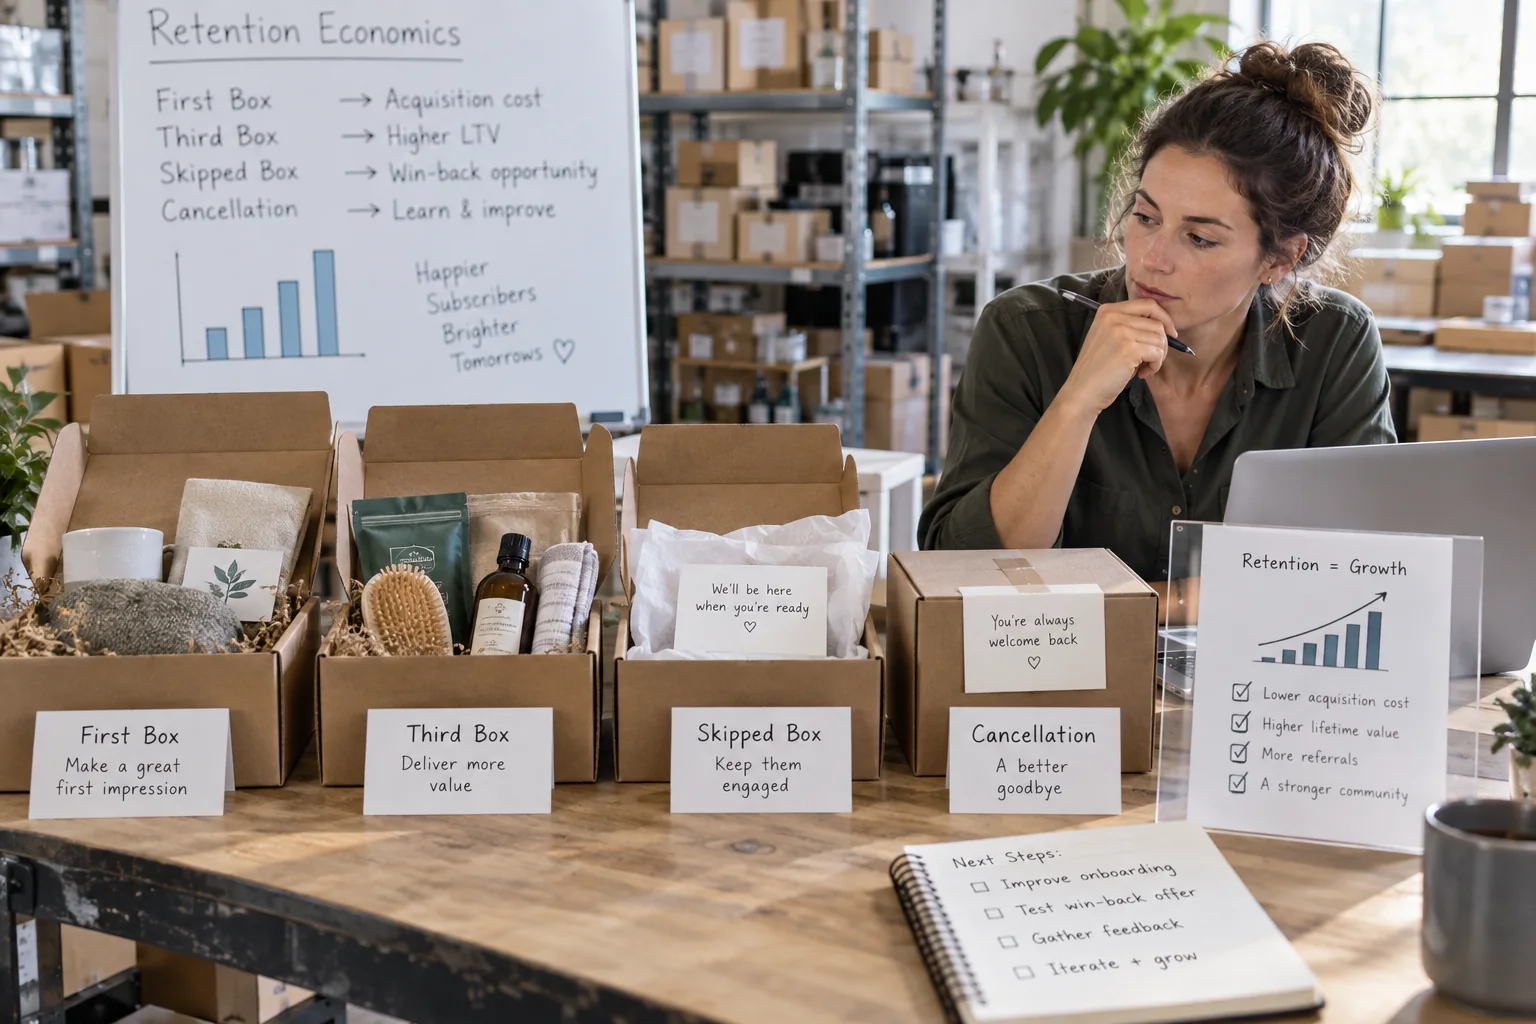 Retention Economics
First Box → Acquisition cost
Third Box → Higher LTV
Skipped Box → Win-back opportunity
Cancellation → Learn & improve
Happier
Subscribers
Brighter
Tomorrows ♡
We'll be here
when you're ready
♡
You're always
welcome back
♡
First Box
Make a great
first impression
Third Box
Deliver more
value
Skipped Box
Keep them
engaged
Cancellation
A better
goodbye
Retention = Growth
Lower acquisition cost
Higher lifetime value
More referrals
A stronger community
Next Steps:
Improve onboarding
Test win-back offer
Gather feedback
Iterate + grow